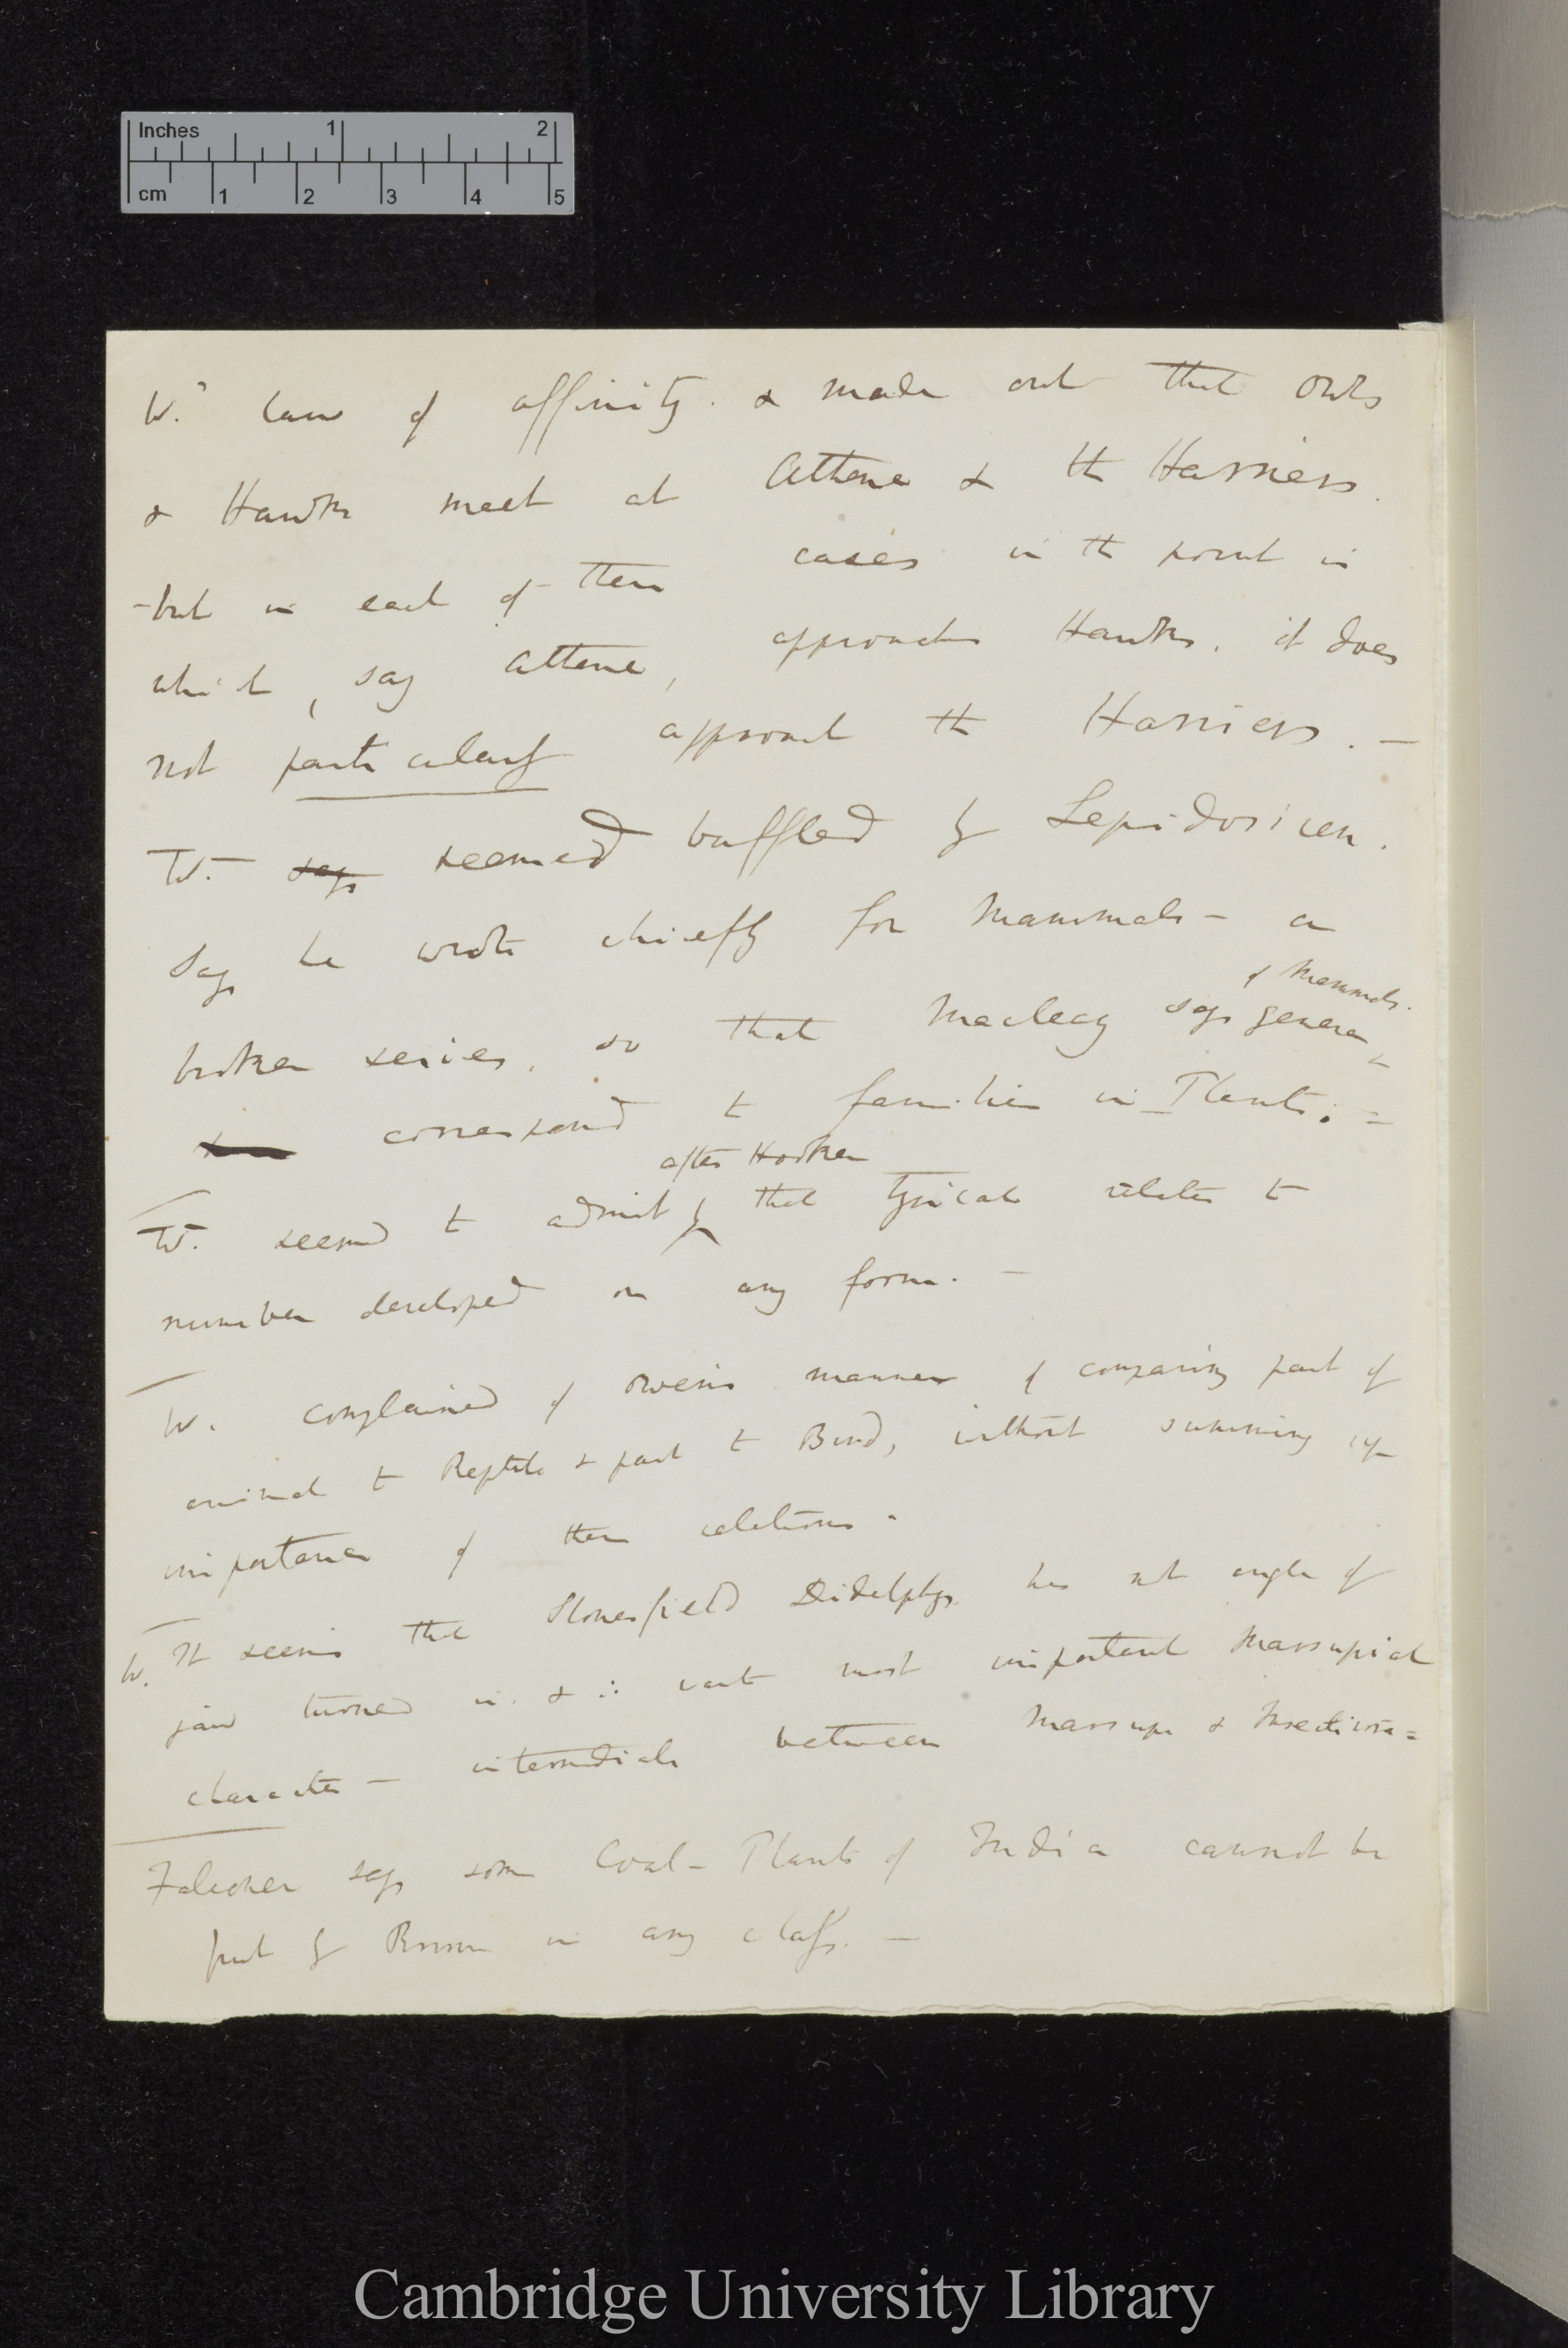 Inches 1 2
cm 1 2 3 4 5
W.'s law of affinity. & made out that Owls
& Hawks meet at Athene & the Harriers.
– but in each of these cases in the point in
which, say Athene, approaches Hawks, it does
not particularly approach the Harriers. —
W. says seemed baffled by Lepidosiren.
Says he wrote chiefly for Mammals – a
of Mammals.
broken series, so that Macleay says genera
correspond to families in Plants. =
after Hooker
W. seemed to admit that typical relates to
number developed on any form. —
W. complained of Owen's manner of comparing part of
animal to Reptile & part to Bird, without summing up
importance of these relations.
W. It seems that Stonesfield Didelphys has not angle of
jaw turned in. & ∴ want most important Marsupial
character — intermediate between Marsup & Insectivora =
Falconer says some Coal-Plants of India cannot be
put by Brown in any class. —
Cambridge University Library